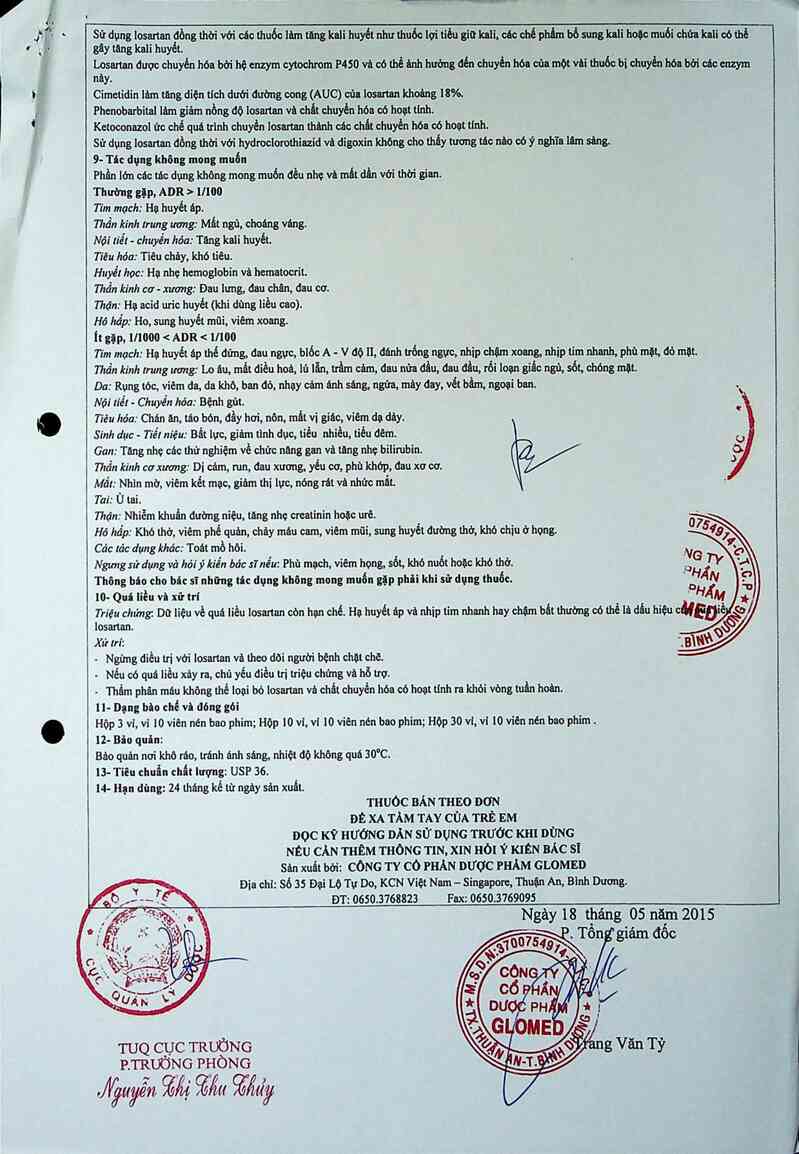 Sử dụng losartan đồng thời với các thuốc làm tăng kali huyết như thuốc lợi tiểu giữ kali, các chế phẩm bổ sung kali hoặc muối chứa kali có thể
gây tăng kali huyết.
Losartan được chuyển hóa bởi hệ enzym cytochrom P450 và có thể ảnh hưởng đến chuyển hóa của một vài thuốc bị chuyển hóa bởi các enzym
này.
Cimetidin làm tăng diện tích dưới đường cong (AUC) của losartan khoảng 18%.
Phenobarbital làm giảm nồng độ losartan và chất chuyển hóa có hoạt tính.
Ketoconazol ức chế quá trình chuyển losartan thành các chất chuyển hóa có hoạt tính.
Sử dụng losartan đồng thời với hydroclorothiazid và digoxin không cho thấy tương tác nào có ý nghĩa lâm sàng.
9- Tác dụng không mong muốn
Phần lớn các tác dụng không mong muốn đều nhẹ và mất dần với thời gian.
Thường gặp, ADR > 1/100
Tim mạch: Hạ huyết áp.
Thần kinh trung ương: Mất ngủ, choáng váng.
Nội tiết - chuyển hóa: Tăng kali huyết.
Tiêu hóa: Tiêu chảy, khó tiêu.
Huyết học: Hạ nhẹ hemoglobin và hematocrit.
Thần kinh cơ - xương: Đau lưng, đau chân, đau cơ.
Thận: Hạ acid uric huyết (khi dùng liều cao).
Hô hấp: Ho, sung huyết mũi, viêm xoang.
Ít gặp, 1/1000 < ADR < 1/100
Tim mạch: Hạ huyết áp thế đứng, đau ngực, blốc A - V độ II, đánh trống ngực, nhịp chậm xoang, nhịp tim nhanh, phù mặt, đỏ mặt.
Thần kinh trung ương: Lo âu, mất điều hoà, lú lẫn, trầm cảm, đau nửa đầu, đau đầu, rối loạn giấc ngủ, sốt, chóng mặt.
Da: Rụng tóc, viêm da, da khô, ban đỏ, nhạy cảm ánh sáng, ngứa, mày đay, vết bầm, ngoại ban.
Nội tiết - Chuyển hóa: Bệnh gút.
Tiêu hóa: Chán ăn, táo bón, đầy hơi, nôn, mất vị giác, viêm dạ dày.
Sinh dục - Tiết niệu: Bất lực, giảm tình dục, tiểu nhiều, tiểu đêm.
Gan: Tăng nhẹ các thử nghiệm về chức năng gan và tăng nhẹ bilirubin.
Thần kinh cơ xương: Dị cảm, run, đau xương, yếu cơ, phù khớp, đau xơ cơ.
Mắt: Nhìn mờ, viêm kết mạc, giảm thị lực, nóng rát và nhức mắt.
Tai: Ù tai.
Thận: Nhiễm khuẩn đường niệu, tăng nhẹ creatinin hoặc urê.
Hô hấp: Khó thở, viêm phế quản, chảy máu cam, viêm mũi, sung huyết đường thở, khó chịu ở họng.
Các tác dụng khác: Toát mồ hôi.
Ngưng sử dụng và hỏi ý kiến bác sĩ nếu: Phù mạch, viêm họng, sốt, khó nuốt hoặc khó thở.
Thông báo cho bác sĩ những tác dụng không mong muốn gặp phải khi sử dụng thuốc.
10- Quá liều và xử trí
Triệu chứng: Dữ liệu về quá liều losartan còn hạn chế. Hạ huyết áp và nhịp tim nhanh hay chậm bất thường có thể là dấu hiệu của quá liều
losartan.
Xử trí:
- Ngừng điều trị với losartan và theo dõi người bệnh chặt chẽ.
- Nếu có quá liều xảy ra, chủ yếu điều trị triệu chứng và hỗ trợ.
- Thẩm phân máu không thể loại bỏ losartan và chất chuyển hóa có hoạt tính ra khỏi vòng tuần hoàn.
11- Dạng bào chế và đóng gói
Hộp 3 vỉ, vỉ 10 viên nén bao phim; Hộp 10 vỉ, vỉ 10 viên nén bao phim; Hộp 30 vỉ, vỉ 10 viên nén bao phim .
12- Bảo quản:
Bảo quản nơi khô ráo, tránh ánh sáng, nhiệt độ không quá 30°C.
13- Tiêu chuẩn chất lượng: USP 36.
14- Hạn dùng: 24 tháng kể từ ngày sản xuất.
THUỐC BÁN THEO ĐƠN
ĐỂ XA TẦM TAY CỦA TRẺ EM
ĐỌC KỸ HƯỚNG DẪN SỬ DỤNG TRƯỚC KHI DÙNG
NẾU CẦN THÊM THÔNG TIN, XIN HỎI Ý KIẾN BÁC SĨ
Sản xuất bởi: CÔNG TY CỔ PHẦN DƯỢC PHẨM GLOMED
Địa chỉ: Số 35 Đại Lộ Tự Do, KCN Việt Nam – Singapore, Thuận An, Bình Dương.
ĐT: 0650.3768823 Fax: 0650.3769095
Ngày 18 tháng 05 năm 2015
P. Tổng giám đốc
DƯỢC
0754914-C.T.C.P
NG TY
PHẦN
PHẨM
MED
.BÌNH DƯƠNG
BỘ Y TẾ
CỤC QUẢN LÝ DƯỢC
M.S.D.N:3700754914
CÔNG TY
CỔ PHẦN
DƯỢC PHẨM
GLOMED
TX.THUẬN AN-T.BÌNH DƯƠNG
Trang Văn Tý
TUQ CỤC TRƯỞNG
P.TRƯỞNG PHÒNG
Nguyễn Thị Thu Thủy